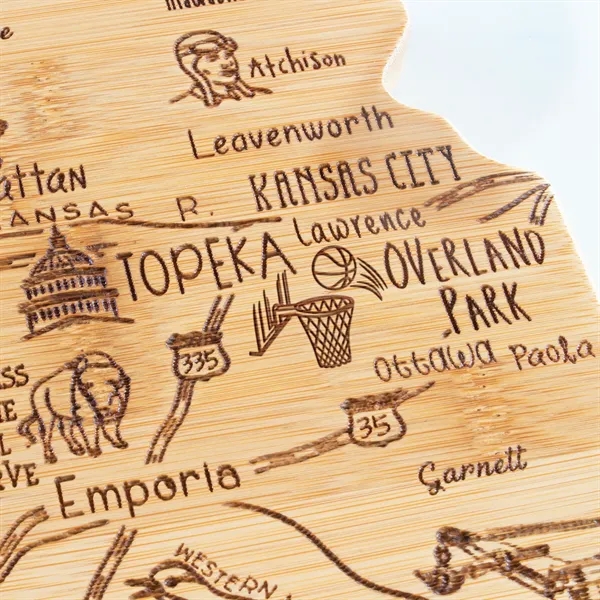 Atchison
Leavenworth
attan
KANSAS CITY
ANSAS R.
Lawrence
TOPEKA
OVERLAND
PARK
335
Ottawa Paola
35
Emporia
Garnett
WESTERN